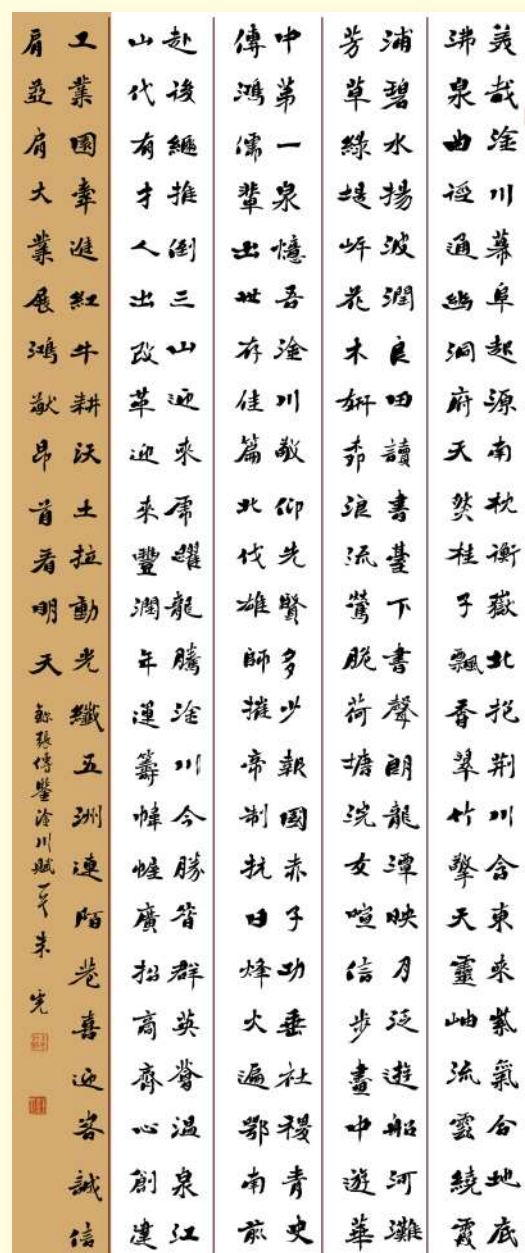 美哉淦川幕阜起源南枕衡嶽北挹荆川含東來紫氣合地底
沸泉曲徑通幽洞府天然桂子飄香翠竹擎天靈岫流雲繞霞
浦碧水揚波潤良田讀書臺下書聲朗龍潭映月泛遊船河灘
芳草綠堤岍花木妍奔浪流鶯脆荷塘浣女喧信步畫中遊華
中第一泉憶吾淦川敬仰先賢多少報國赤子功垂社稷青史
傳鴻儒輩出世存佳篇北伐雄師摧帝制抗日烽火遍鄂南前
赴後繼推倒三山迎來虎躍龍騰淦川今勝昔群英薈溫泉江
山代有才人出改革迎來豐潤年運籌帷幄廣招商齊心創建
工業園牽進紅牛耕沃土拉動光纖五洲連陌巷喜迎客誠信
肩並肩大業展鴻猷昂首看明天
錄張傳鑒淦川賦 朱